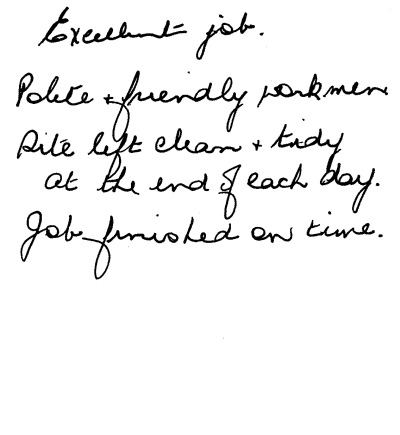 Excellent job.
Polite + friendly workmen
Site left clean + tidy
at the end of each day.
Job finished on time.